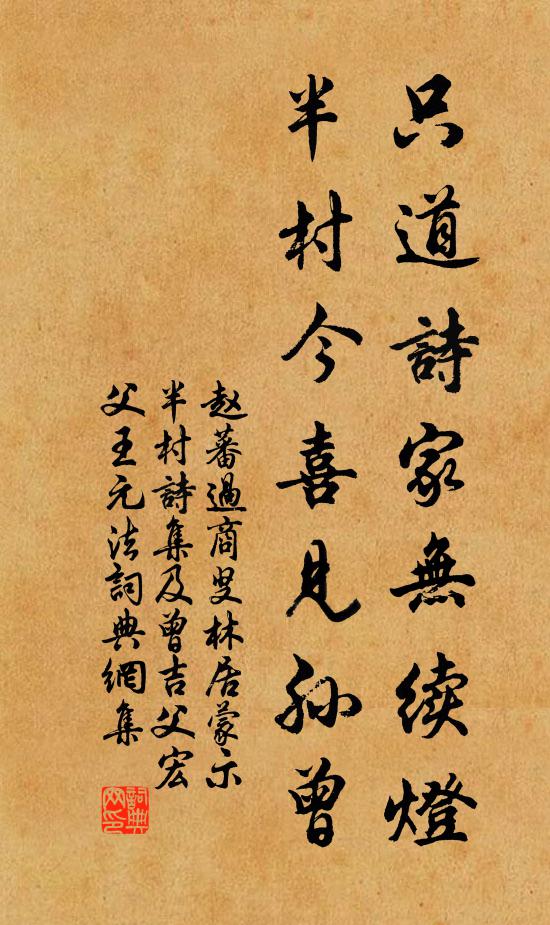 只道詩家無續燈
半村今喜見孫曾
赵蕃過商叟林居蒙示
半村詩集及曾吉父宏
父王元法詞典網集
詞典網印